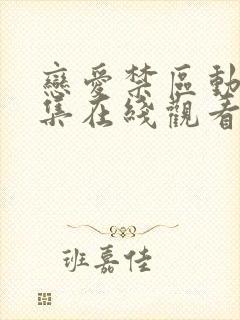 戀愛禁區動
集在綫觀看
班嘉佳